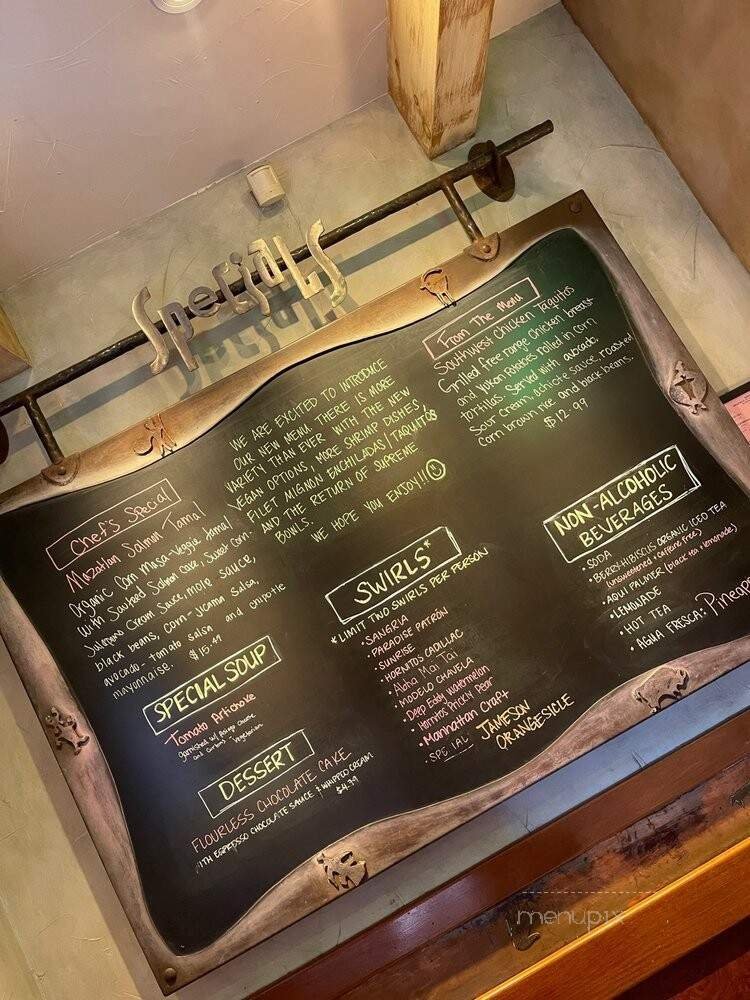 Specials
Chef's Special
Mazatlan Salmon Tamal
Organic Corn Masa-Veggie tamal
With Sautéed Salmon Cake, Sweet Corn-
Jalapeno Cream Sauce, mole sauce,
black beans, corn-jicama salsa,
avocado-tomato salsa and chipotle
mayonnaise. $15.49
SPECIAL SOUP
Tomato Artichoke
garnished w/ Asiago cheese
and croutons - Vegetarian
DESSERT
FLOURLESS CHOCOLATE CAKE
WITH ESPRESSO CHOCOLATE SAUCE & WHIPPED CREAM
$4.39
WE ARE EXCITED TO INTRODUCE
OUR NEW MENU. THERE IS MORE
VARIETY THAN EVER WITH THE NEW
VEGAN OPTIONS, MORE SHRIMP DISHES
FILET MIGNON ENCHILADAS/TAQUITOS
AND THE RETURN OF SUPREME
BOWLS.
WE HOPE YOU ENJOY!!
SWIRLS*
*LIMIT TWO SWIRLS PER PERSON
• SANGRIA
• PARADISE PATRÓN
• SUNRISE
• HORNITOS CADILLAC
• Aloha Mai Tai
• MODELO CHAVELA
• Deep Eddy Watermelon
• Hornitos Prickly Pear
• Manhattan Craft
• SPECIAL JAMESON
ORANGESICLE
From The Menu
Southwest Chicken Taquitos
Grilled free range chicken breast
and Yukon Potatoes rolled in corn
tortillas. Served with avocado,
Sour cream, achiote sauce, roasted
corn brown rice and black beans.
$12.99
NON-ALCOHOLIC
BEVERAGES
• SODA
• BERRY HIBISCUS ORGANIC ICED TEA
(unsweetened + caffeine free)
• AQUI PALMER (black tea + lemonade)
• LEMONADE
• HOT TEA
• AGUA FRESCA: Pineapp
menupix